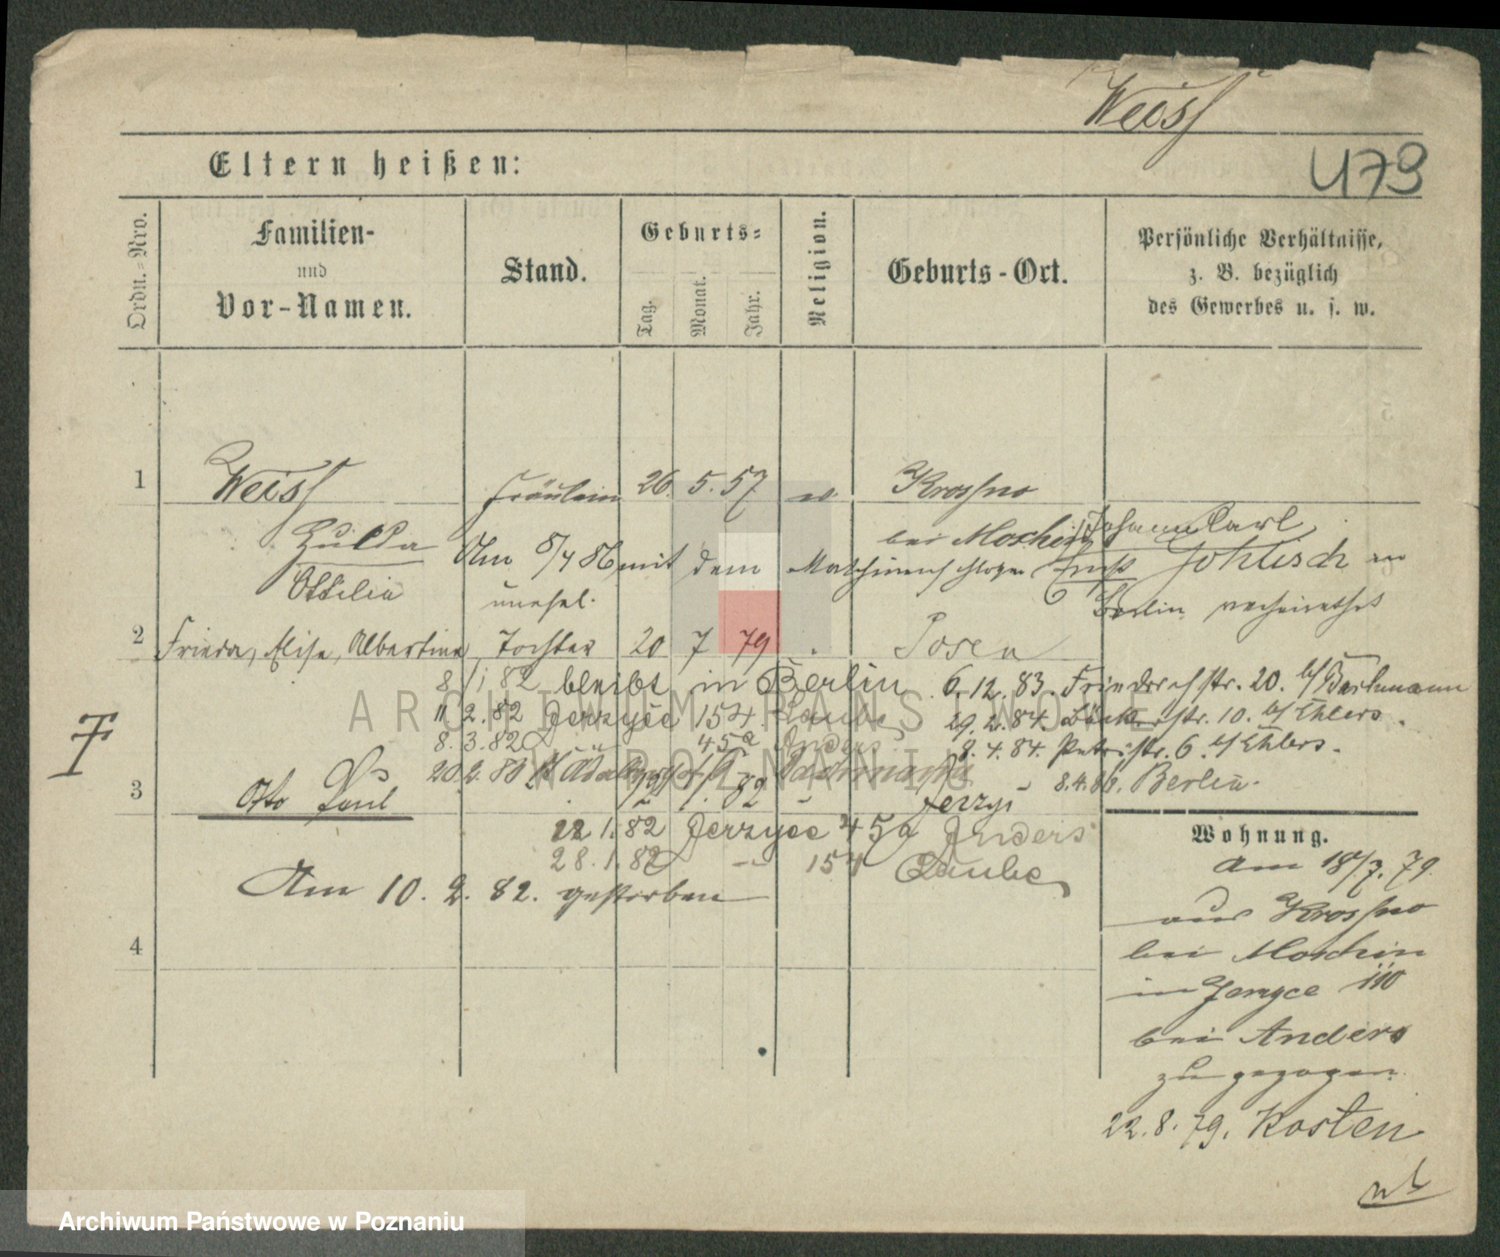 Weiss
Eltern heißen:
479
Ordn.-Nro.
Familien-
und
Vor-Namen.
Stand.
Geburts-
Tag.
Monat.
Jahr.
Religion.
Geburts-Ort.
Persönliche Verhältnisse,
z. B. bezüglich
des Gewerbes u. s. w.
1 Weiss Fräulein 26. 5. 57 ev. Krossno
Hulda
bei Moschin
Ottilie
Am 8/4 86 mit dem Maschinenschlosser Johann Carl Johlisch in
Berlin verheirathet
unehel.
2 Frieda, Elise, Albertine Tochter 20 7 79 Posen
8/1. 82 bleibt in Berlin 6.12.83. Friedrichstr. 20. b/
11 2.82 Jerzyce 154. Laube 29.2.84. Bäckerstr. 10. b/ Ehlers.
8.3.82 45a Anders 8.4.84. Petristr. 6. b/ Ehlers.
8.4.86. Berlin.
3 Otto Paul 19 1. 82 Jerzyce
12 1.82 Jerzyce 45a Anders
28.1.82 154 Laube
Am 10. 2. 82. gestorben
4
Wohnung.
Am 18/7. 79.
aus Krossno
bei Moschin
in Jerzyce 110
bei Anders
zugezogen.
22.8.79. Kosten
ARCHIWUM PAŃSTWOWE
W POZNANIU
Archiwum Państwowe w Poznaniu